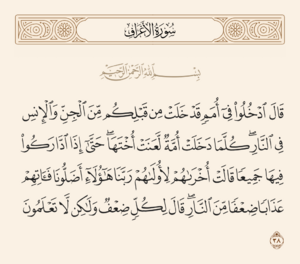 سُورَةُ الأَعۡرَافِ
بِسۡمِ ٱللَّهِ ٱلرَّحۡمَٰنِ ٱلرَّحِيمِ
قَالَ ٱدۡخُلُواْ فِيٓ أُمَمٖ قَدۡ خَلَتۡ مِن قَبۡلِكُم مِّنَ ٱلۡجِنِّ وَٱلۡإِنسِ
فِي ٱلنَّارِۖ كُلَّمَا دَخَلَتۡ أُمَّةٞ لَّعَنَتۡ أُخۡتَهَاۖ حَتَّىٰٓ إِذَا ٱدَّارَكُواْ
فِيهَا جَمِيعٗا قَالَتۡ أُخۡرَىٰهُمۡ لِأُولَىٰهُمۡ رَبَّنَا هَٰٓؤُلَآءِ أَضَلُّونَا فَـَٔاتِهِمۡ
عَذَابٗا ضِعۡفٗا مِّنَ ٱلنَّارِۖ قَالَ لِكُلّٖ ضِعۡفٞ وَلَٰكِن لَّا تَعۡلَمُونَ
٣٨